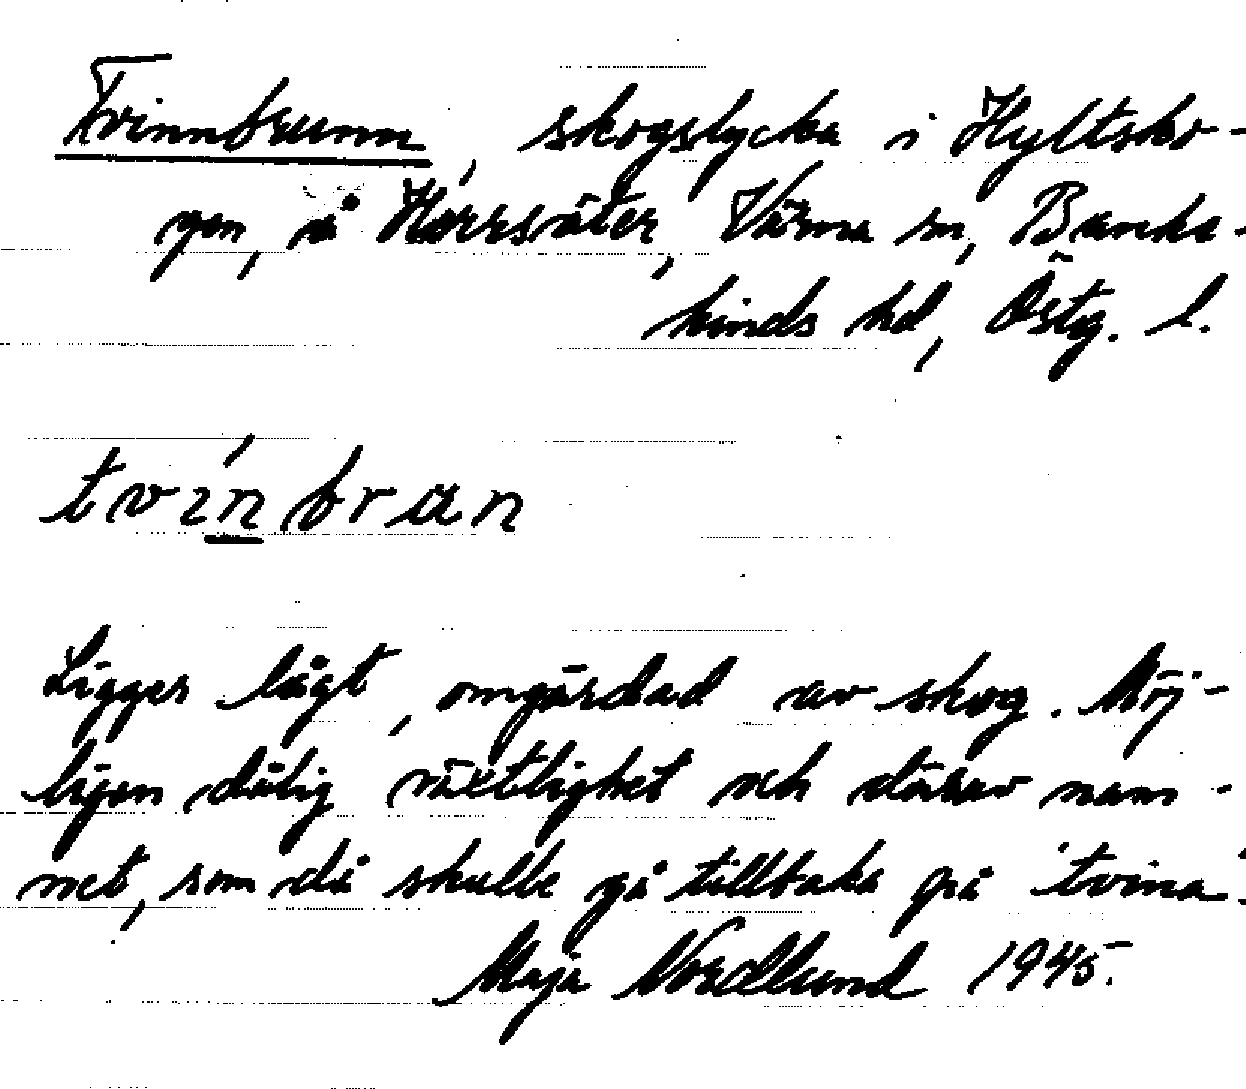 Tvinnbrunn, skogslycka i Hyltsko-
gen, å Horrsäter, Värna sn, Banke-
kinds hd, Östg. l.
tvínbran
Ligger lågt, omgärdad av skog. Möj-
ligen dålig växtlighet och därav nam-
net, som då skulle gå tillbaka på 'tvina'.
Maja Nordlund 1945.